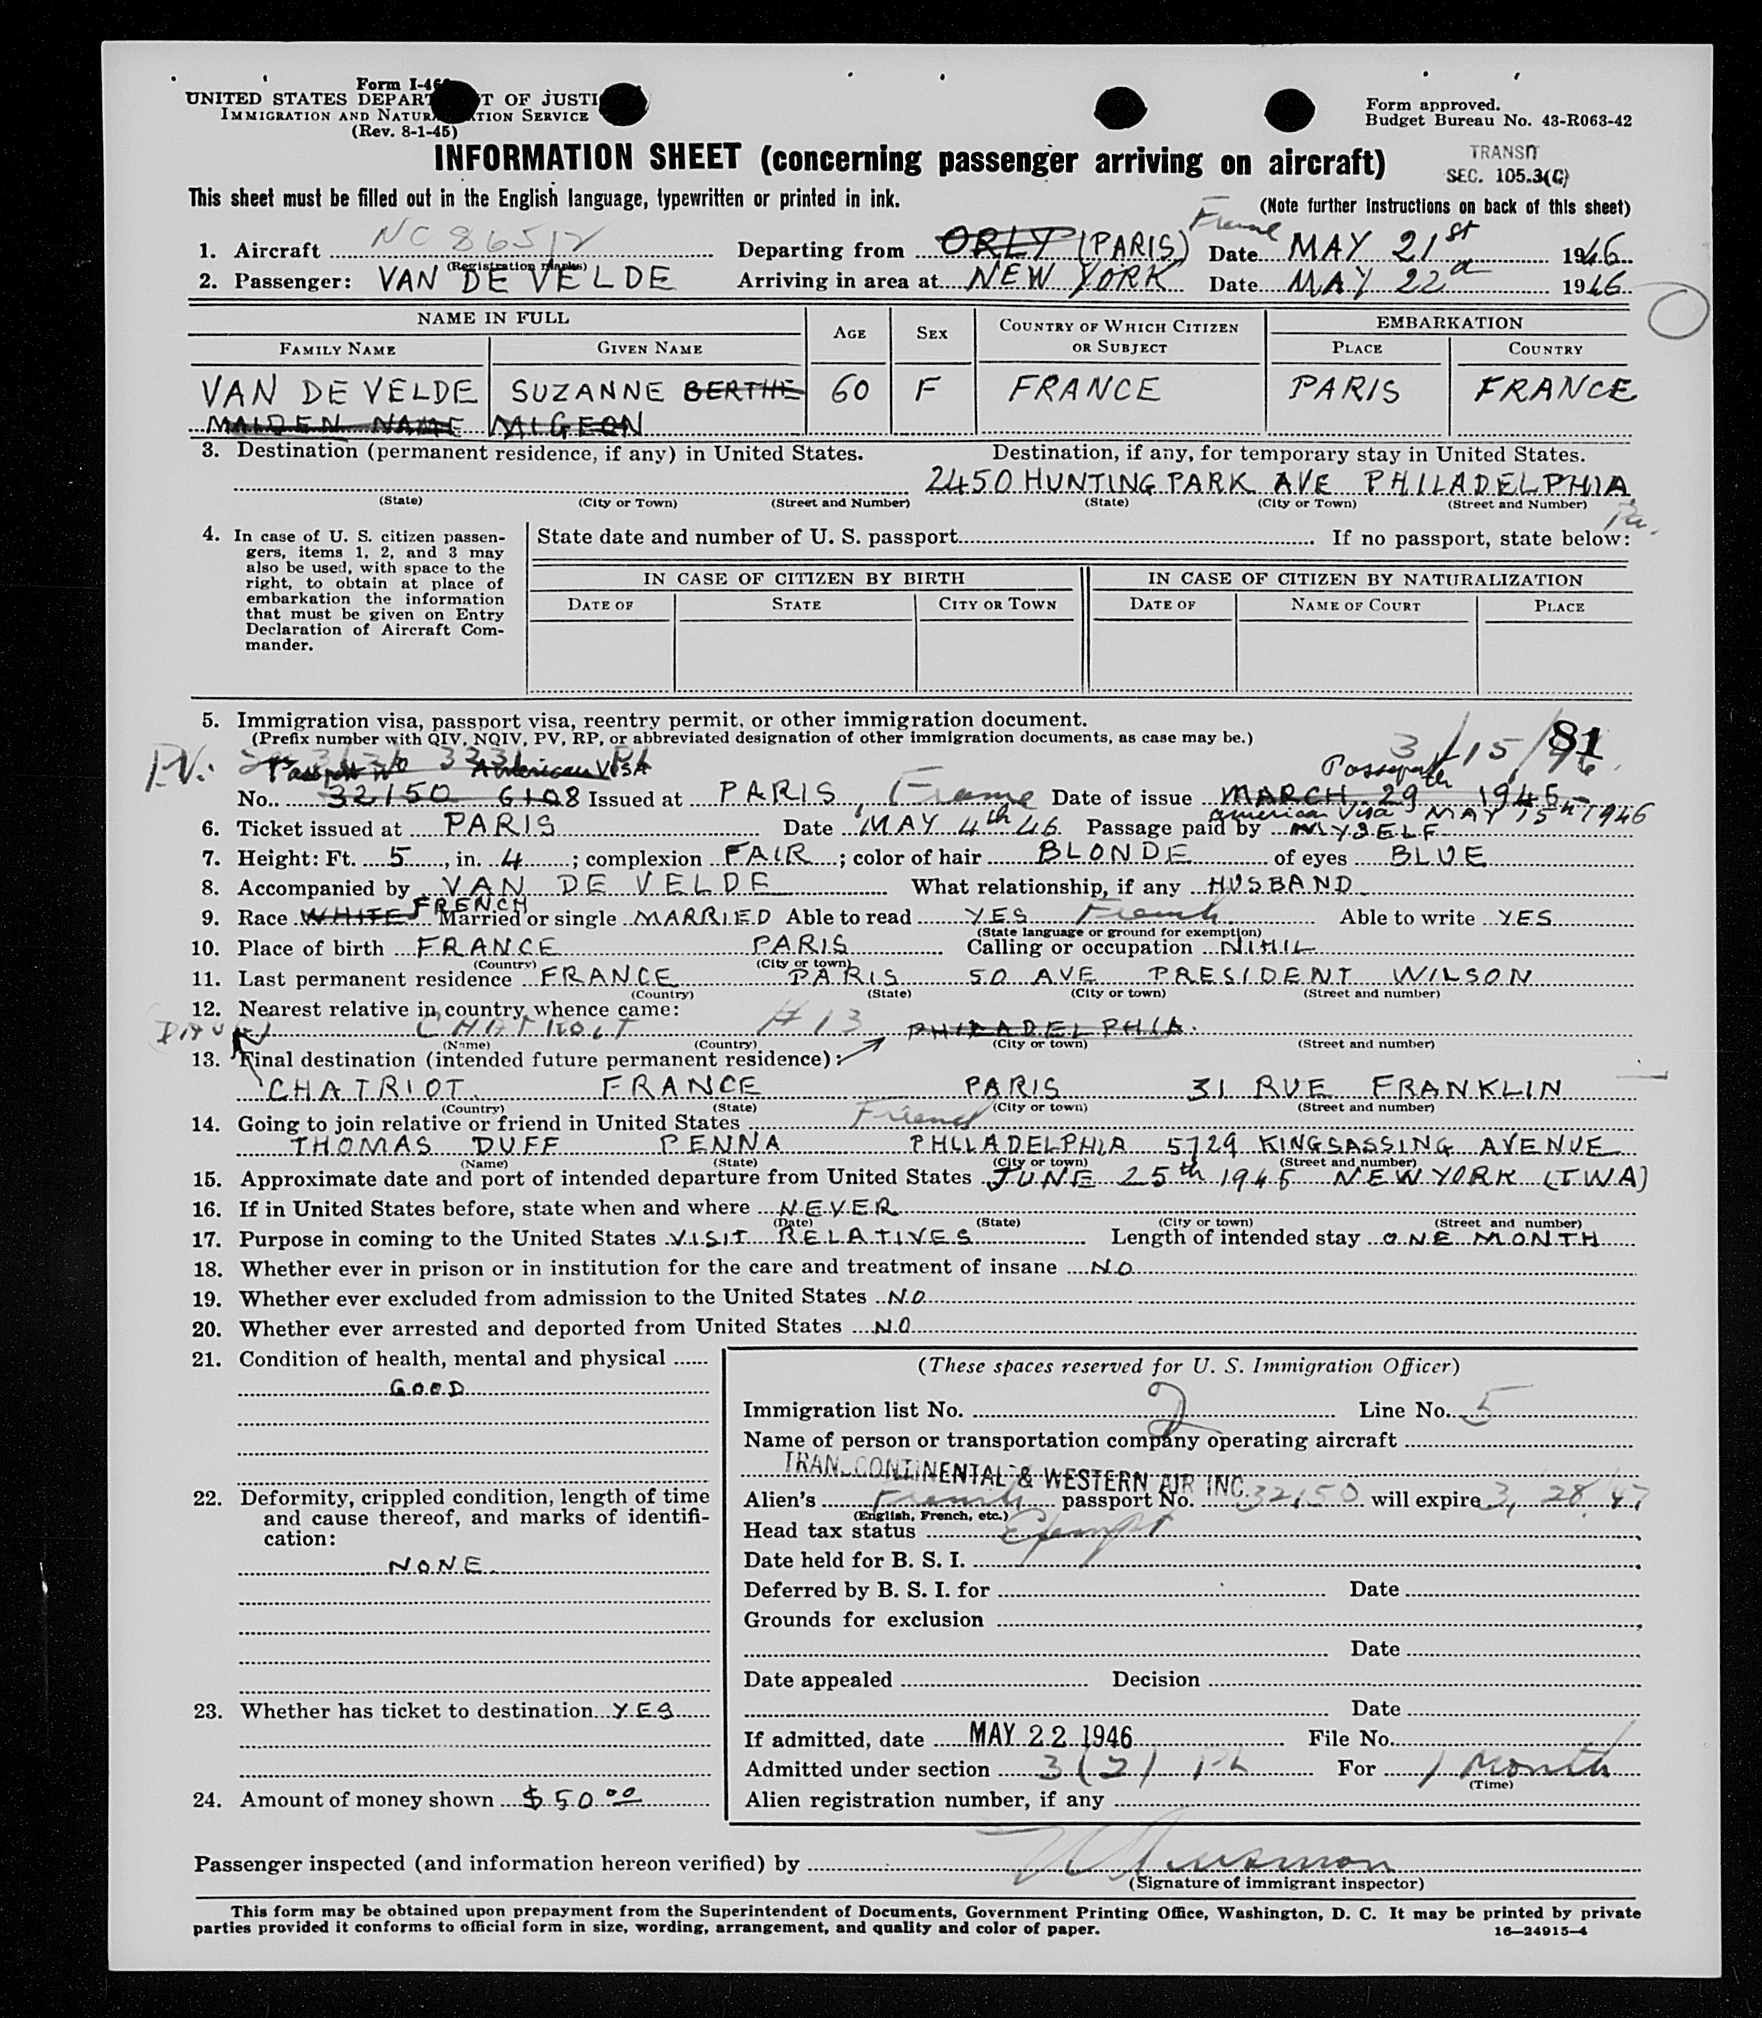 Form I-46
UNITED STATES DEPART T OF JUSTI
IMMIGRATION AND NATUR TION SERVICE
(Rev. 8-1-45)
Form approved.
Budget Bureau No. 43-R063-42
INFORMATION SHEET (concerning passenger arriving on aircraft)
TRANSIT
SEC. 105.3(C)
This sheet must be filled out in the English language, typewritten or printed in ink.
(Note further instructions on back of this sheet)
1. Aircraft NC 86512 Departing from ORLY (PARIS) France Date MAY 21st 1946
(Registration marks)
2. Passenger: VAN DE VELDE Arriving in area at NEW YORK Date MAY 22d 1946
NAME IN FULL AGE SEX COUNTRY OF WHICH CITIZEN OR SUBJECT EMBARKATION
FAMILY NAME GIVEN NAME PLACE COUNTRY
VAN DE VELDE SUZANNE BERTHE 60 F FRANCE PARIS FRANCE
MAIDEN NAME MIGEON
3. Destination (permanent residence, if any) in United States. Destination, if any, for temporary stay in United States.
2450 HUNTING PARK AVE PHILADELPHIA
(State) (City or Town) (Street and Number) (State) (City or Town) (Street and Number) Pa.
4. In case of U. S. citizen passen-
gers, items 1, 2, and 3 may
also be used, with space to the
right, to obtain at place of
embarkation the information
that must be given on Entry
Declaration of Aircraft Com-
mander.
State date and number of U. S. passport If no passport, state below:
IN CASE OF CITIZEN BY BIRTH IN CASE OF CITIZEN BY NATURALIZATION
DATE OF STATE CITY OR TOWN DATE OF NAME OF COURT PLACE
5. Immigration visa, passport visa, reentry permit, or other immigration document.
(Prefix number with QIV, NQIV, PV, RP, or abbreviated designation of other immigration documents, as case may be.)
3/15/46 81
P.V. Passport No American VISA Passport
No. 32150 6108 Issued at PARIS, France Date of issue MARCH 29th 1945
American Visa MAY 15th 1946
6. Ticket issued at PARIS Date MAY 4th 46 Passage paid by MYSELF
7. Height: Ft. 5, in. 4; complexion FAIR; color of hair BLONDE of eyes BLUE
8. Accompanied by VAN DE VELDE What relationship, if any HUSBAND
9. Race WHITE FRENCH Married or single MARRIED Able to read YES French Able to write YES
(State language or ground for exemption)
10. Place of birth FRANCE PARIS Calling or occupation NIHIL
(Country) (City or town)
11. Last permanent residence FRANCE PARIS 50 AVE PRESIDENT WILSON
(Country) (State) (City or town) (Street and number)
12. Nearest relative in country whence came:
CHATRIOT # 13 PHILADELPHIA.
(Name) (Country) (City or town) (Street and number)
13. Final destination (intended future permanent residence):
CHATRIOT FRANCE PARIS 31 RUE FRANKLIN
(Country) (State) (City or town) (Street and number)
14. Going to join relative or friend in United States Friend
THOMAS DUFF PENNA PHILADELPHIA 5729 KINGSASSING AVENUE
(Name) (State) (City or town) (Street and number)
15. Approximate date and port of intended departure from United States JUNE 25th 1946 NEW YORK (TWA)
16. If in United States before, state when and where NEVER
(Date) (State) (City or town) (Street and number)
17. Purpose in coming to the United States VISIT RELATIVES Length of intended stay ONE MONTH
18. Whether ever in prison or in institution for the care and treatment of insane NO
19. Whether ever excluded from admission to the United States NO
20. Whether ever arrested and deported from United States NO
21. Condition of health, mental and physical
GOOD
22. Deformity, crippled condition, length of time
and cause thereof, and marks of identifi-
cation:
NONE.
23. Whether has ticket to destination YES
24. Amount of money shown $50.00
(These spaces reserved for U. S. Immigration Officer)
Immigration list No. 2 Line No. 5
Name of person or transportation company operating aircraft
TRANSCONTINENTAL & WESTERN AIR INC.
Alien's French passport No. 32150 will expire 3, 28, 47
(English, French, etc.)
Head tax status Exempt
Date held for B. S. I.
Deferred by B. S. I. for Date
Grounds for exclusion
Date
Date appealed Decision
Date
If admitted, date MAY 22 1946 File No.
Admitted under section 3(2) For 1 Month
(Time)
Alien registration number, if any
Passenger inspected (and information hereon verified) by
(Signature of immigrant inspector)
This form may be obtained upon prepayment from the Superintendent of Documents, Government Printing Office, Washington, D. C. It may be printed by private
parties provided it conforms to official form in size, wording, arrangement, and quality and color of paper.
16—24915-4